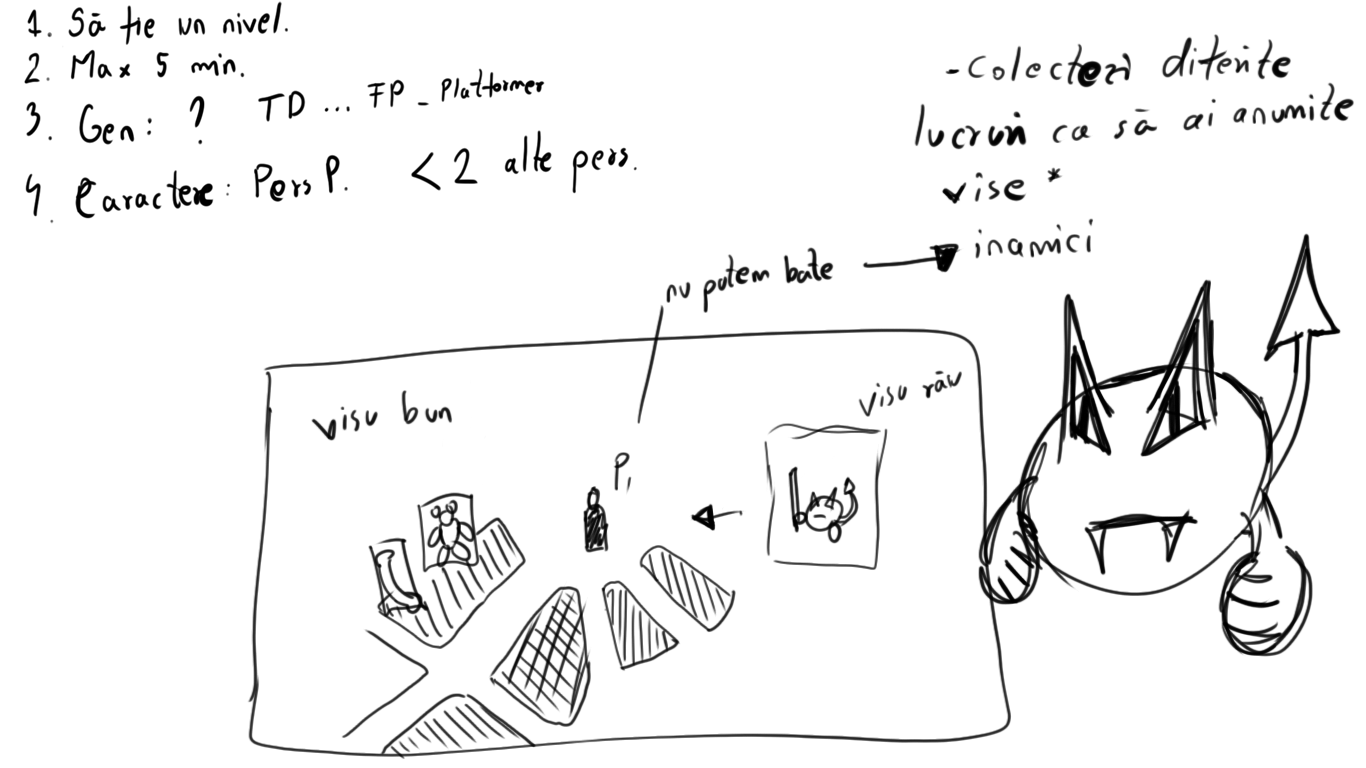 1. Să fie un nivel.
2. Max 5 min.
3. Gen: ? TD ... FP - Platformer
4. Caractere: Pers P. < 2 alte pers.
- Colectezi diferite
lucruri ca să ai anumite
vise *
inamici
nu putem bate
visu bun
visu rău
P1